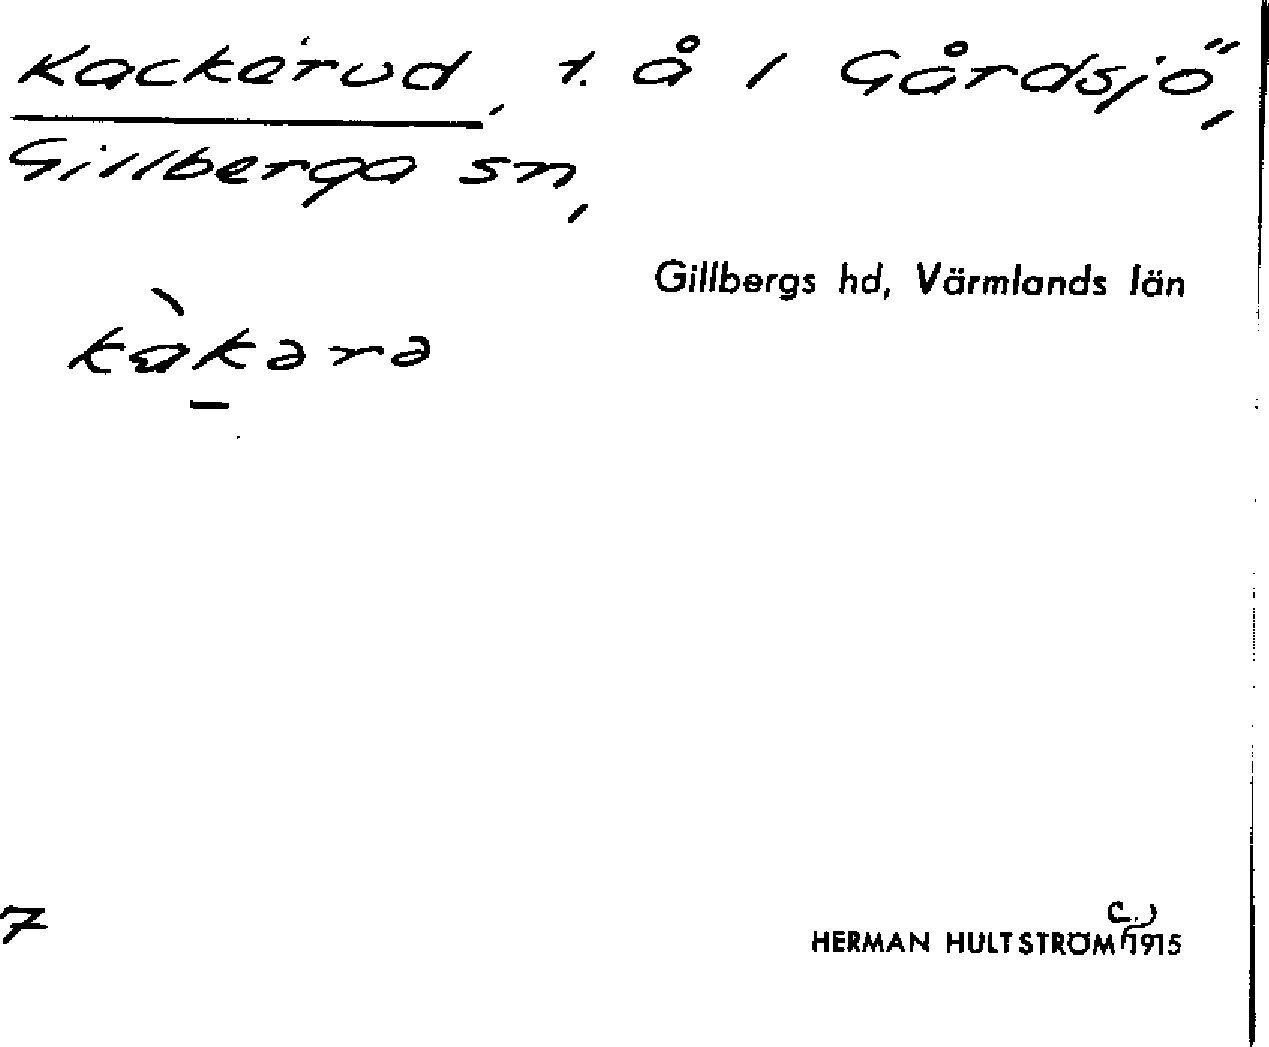 Kackerud, t. å i Gårdsjö,
Gillberga sn,
Gillbergs hd, Värmlands län
kàkərə
7
HERMAN HULTSTRÖM (c.) 1915